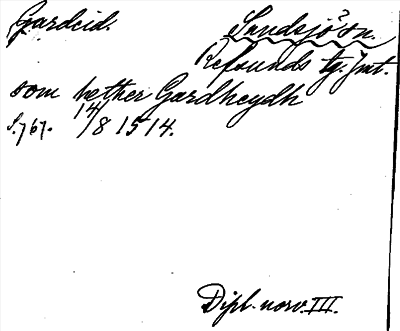 Gardeid. Sandsjö sn.
Refsunds tg. Jmt.
som hether Gardheydh
S. 767. 14/8 1514.
Dipl. norv. III.